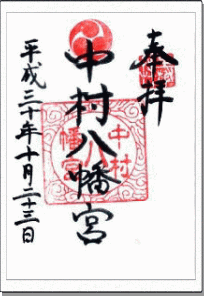 奉拝
中村八幡宮
中村
八
幡宮
平成三十年十月二十三日